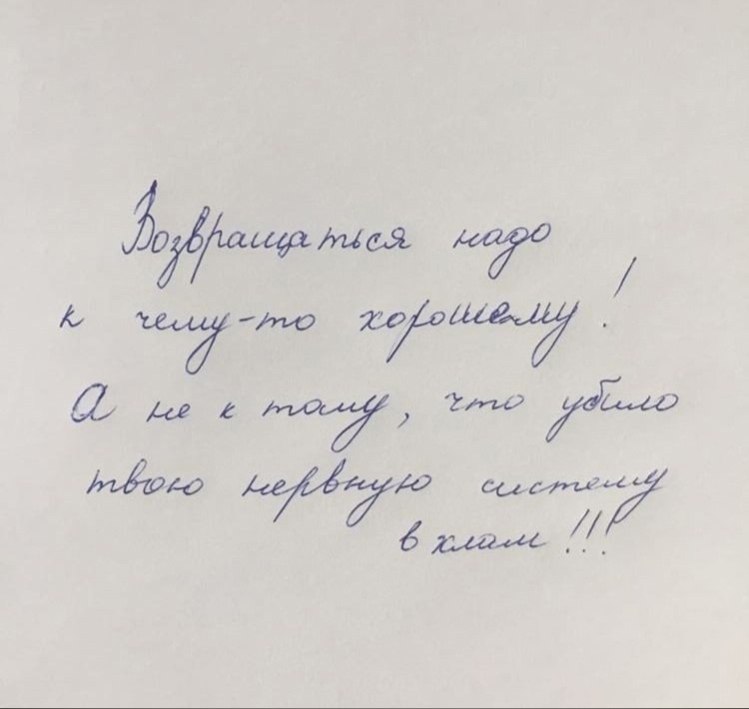 Возвращаться надо
к чему-то хорошему!
А не к тому, что убило
твою нервную систему
в хлам!!!